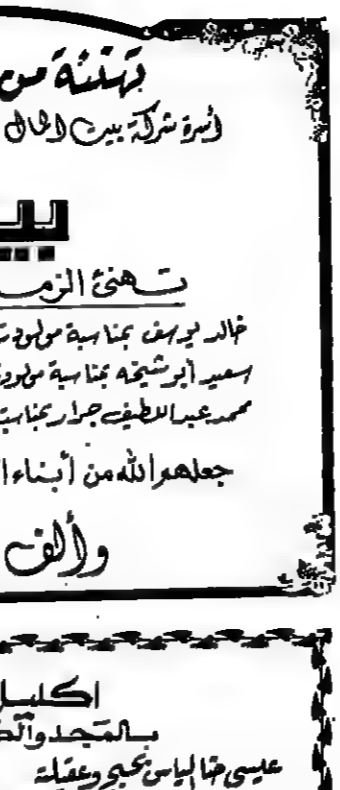 تهنئة من
أسرة شركة بيت المال
بيـ
تـهنئ الزمـ
خالد يوسف بمناسبة مولود
سعيد أبو شيخه بمناسبة مولود
محمد عبد اللطيف جرار بمناسبة
جعلهم الله من أبناء ا
وألف
اكليل
بـالمجد والكـ
عيسى حنا الياس وعقيلته